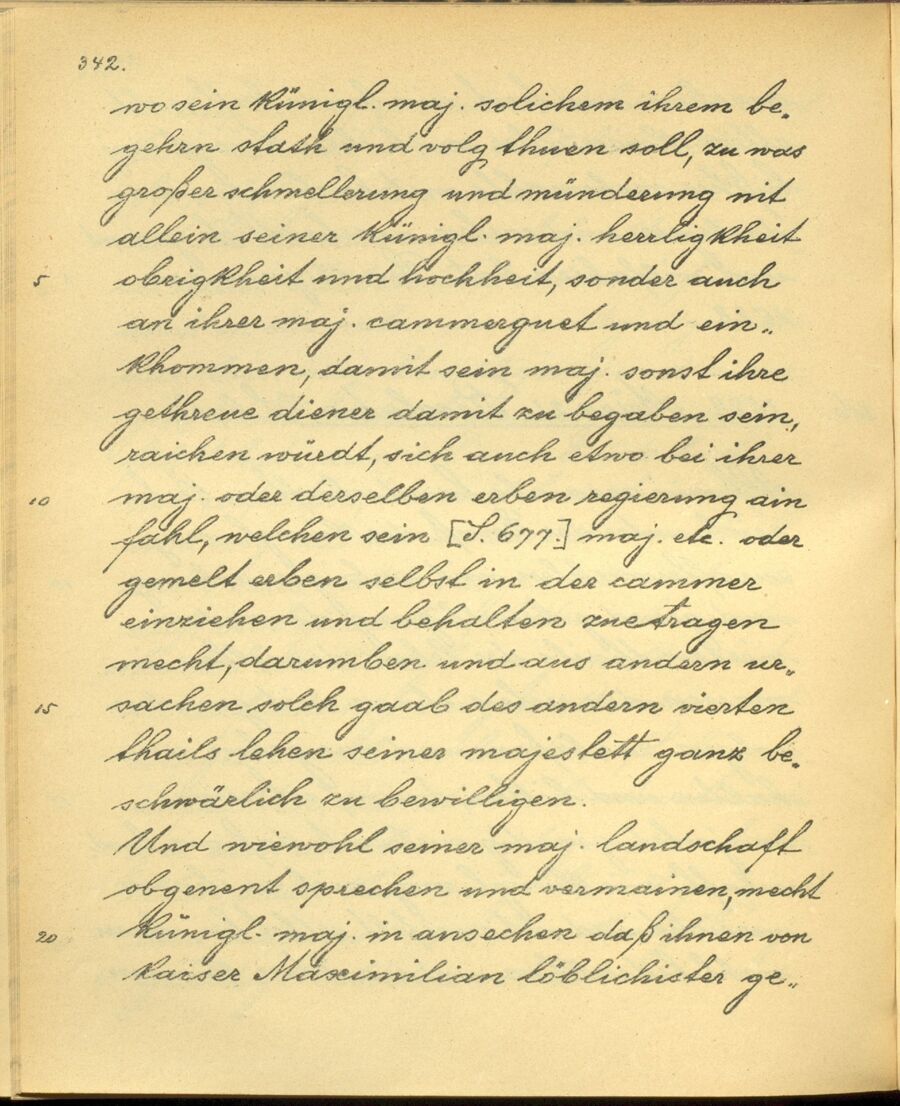 342.
wo sein künigl. maj. solichem ihrem be„
gehrn stath und volg thuen soll, zu was
großer schmellerung und münderung nit
allein seiner künigl. maj. herrligkheit
5 obrigkheit und hochheit, sonder auch
an ihrer maj. cammerguet und ein„
khommen, damit sein maj. sonst ihre
gethreue diener damit zu begaben sein,
raichen würdt, sich auch etwo bei ihrer
10 maj. oder derselben erben regierung ain
fahl, welchen sein [S. 677.] maj. etc. oder
gemelt erben selbst in der cammer
einziehen und behalten zuetragen
mecht, darumben und aus andern ur„
15 sachen solch gaab des andern vierten
thails lehen seiner majestett ganz be„
schwärlich zu bewilligen.
Und wiewohl seiner maj. landschaft
obgenent sprechen und vermainen, mecht
20 künigl. maj. in ansechen daß ihnen von
kaiser Maximilian löblichister ge„